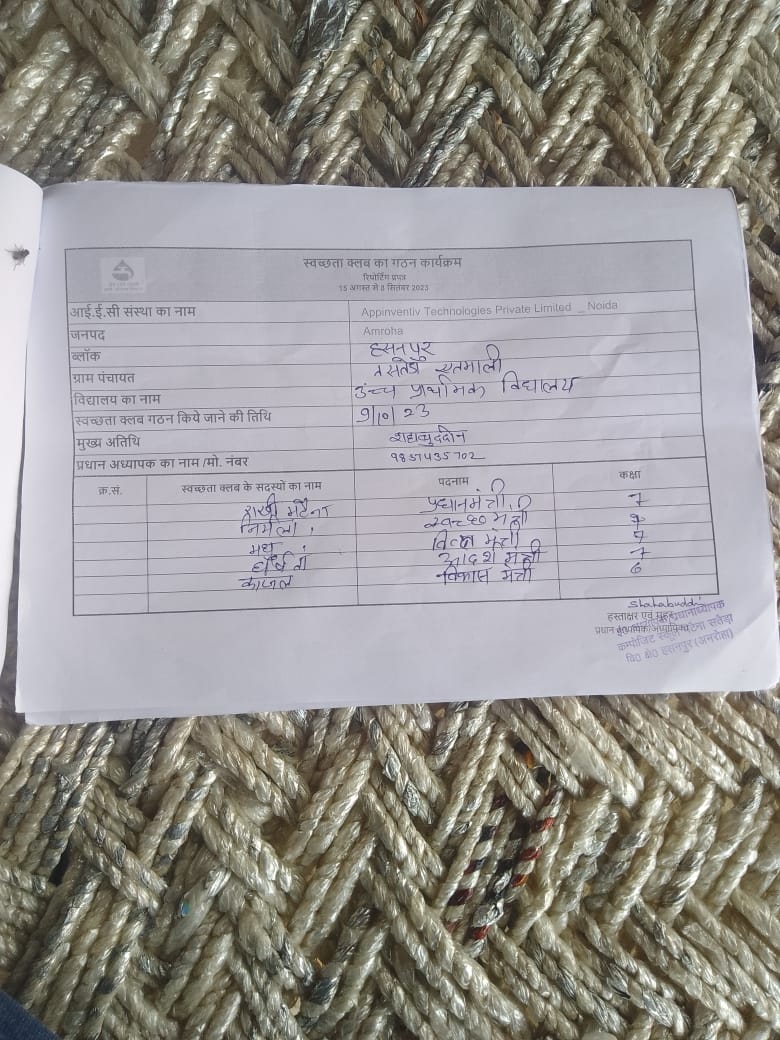 स्वच्छता क्लब का गठन कार्यक्रम
रिपोर्टिंग प्रपत्र
15 अगस्त से 8 सितंबर 2023
आई.ई.सी संस्था का नाम Appinventiv Technologies Private Limited _ Noida
जनपद Amroha
ब्लॉक हसनपुर
ग्राम पंचायत
विद्यालय का नाम उच्च प्राथमिक विद्यालय
स्वच्छता क्लब गठन किये जाने की तिथि 9/10/23
मुख्य अतिथि शहाबुददीन
प्रधान अध्यापक का नाम /मो. नंबर
क्र.सं. स्वच्छता क्लब के सदस्यो का नाम पदनाम कक्षा
राखी प्रधानमंत्री 7
निर्मला मंत्री
मधु मंत्री
मंत्री 7
काजल विकास मंत्री 6
Shahabuddi
हस्ताक्षर एवं मुहर
प्रधान
कम्पोजिट
वि० क्षे० हसनपुर (अमरोहा)